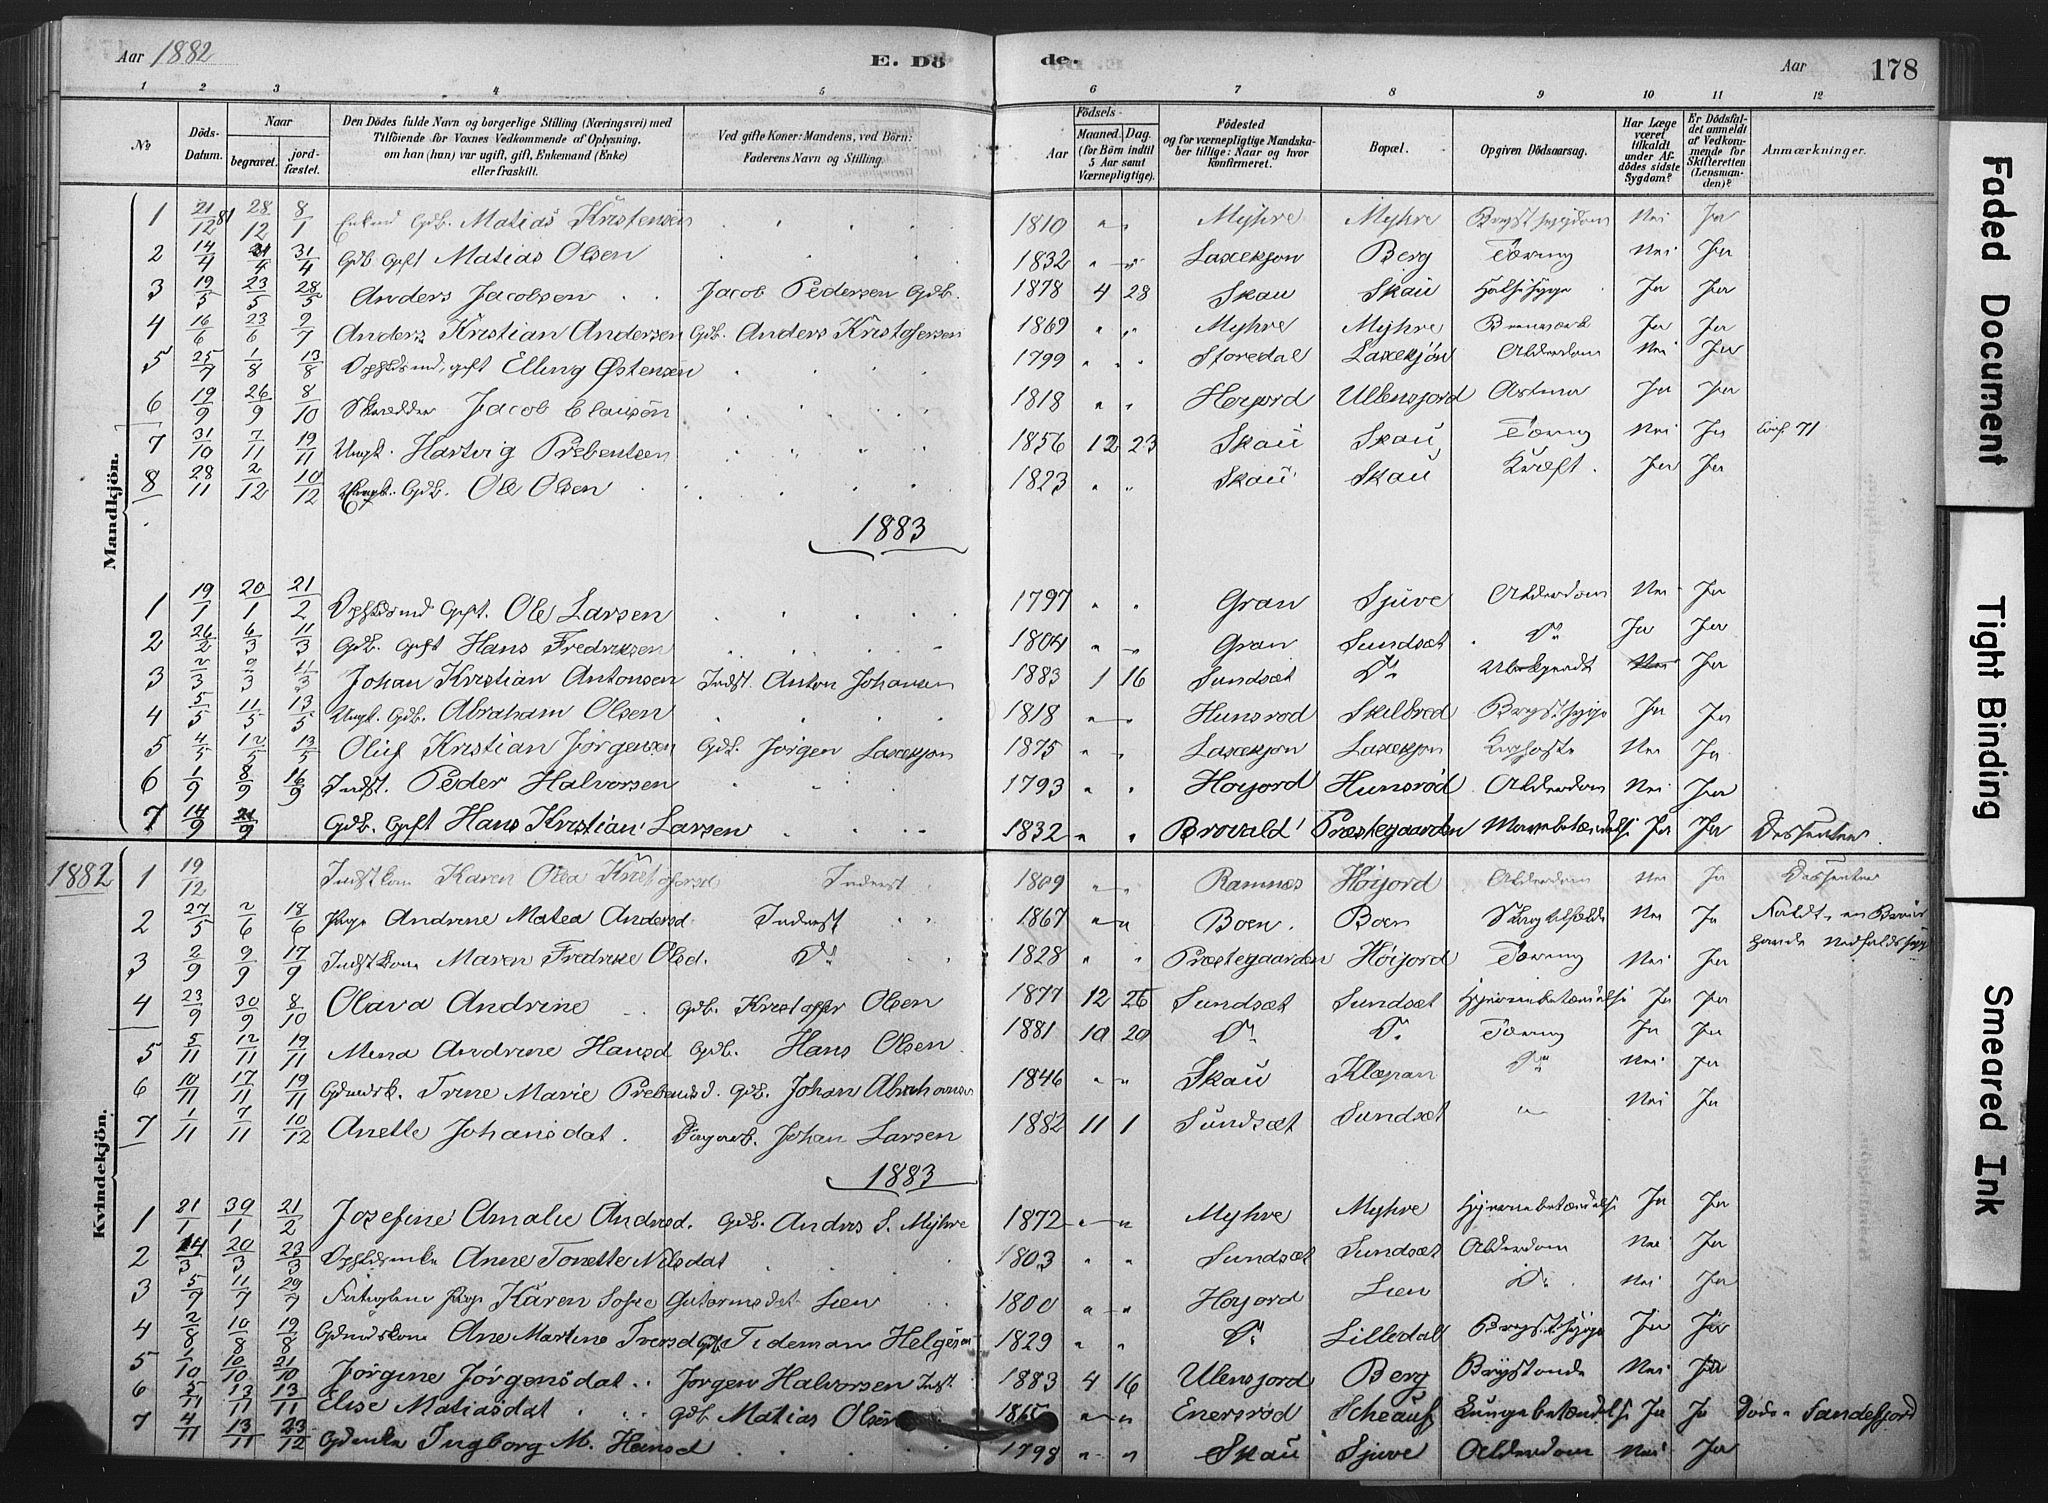 Aar 1882 E. Dö de. Aar 178
1 2 3 4 5 6 7 8 9 10 11 12
№ Döds-Datum. Naar begravet. jord-fæstet. Den Dödes fulde Navn og borgerlige Stilling (Næringsvei) med Tilföiende for Voxnes Vedkommende af Oplysning, om han (hun) var ugift, gift, Enkemand (Enke) eller fraskilt. Ved gifte Koner: Mandens, ved Börn: Faderens Navn og Stilling. Födsels- Aar Maaned. Dag. (for Börn indtil 5 Aar samt Værnepligtige). Födested og for værnepligtige Mandskaber tillige: Naar og hvor konfirmeret. Bopæl. Opgiven Dödsaarsag. Har Læge været tilkaldt under Afdödes sidste Sygdom? Er Dödsfaldet anmeldt af Vedkommende for Skifteretten (Lensmanden)? Anmærkninger.
Mandkjön.
1 21/12 81 28/12 8/1 Gdb. Matias Kristensen 1810 Myhre Myhre Nei Ja
2 14/4 21/4 31/4 Gdb. gift Matias Olsen 1832 Laxeksjon Berg Tæring Nei Ja
3 19/5 23/5 28/5 Anders Jacobsen Jacob Pedersen Gdb. 1878 4 28 Skau Skau Halssyge Ja Ja
4 16/6 23/6 9/7 Anders Kristian Andersen Gdb. Anders Kristofersen 1869 Myhre Myhre Ja Ja
5 25/7 1/8 13/8 gift Elling Østensen 1799 Storedal Laxeksjön Alderdom Nei Ja
6 19/9 26/9 8/10 Skredder Jacob Clausön 1818 Hoyord Ullensjord Astma Ja Ja
7 31/10 7/11 19/11 Ungk. Hartvig Prebentsen 1856 12 23 Skau Skau Tæring Nei Ja 71
8 28/11 2/12 10/12 Ungk. Gdb. Ole Olsen 1823 Skau Skau Kræft. Ja Ja
1883
1 19/1 20/1 21/2 Gift. Ole Larsen 1797 Gran Sjuve Alderdom Nei Ja
2 26/2 6/3 11/3 Gdb. Gift Hans Fredriksen 1804 Gran Sundsæt Do Ja Ja
3 2/3 9/3 11/3 Johan Kristian Antonsen Indst. Anton Johansen 1883 1 16 Sundsæt Do Nei Ja
4 5/5 11/5 13/5 Ungk. Gdb. Abraham Olsen 1818 Hunsrod Skilbred Brystsyge Ja Ja
5 4/5 12/5 13/5 Oluf Kristian Jörgensen Gdb. Jörgen Laxeksjon 1875 Laxeksjon Laxeksjon Kighoste Nei Ja
6 1/9 8/9 16/9 Indst. Peder Halvorsen 1793 Hoyjord Hunsröd Alderdom Nei Ja
7 14/9 21/9 Gdb. Gift Hans Kristian Larsen 1832 Brovald Præstegaarden Mavebetændelse Ja Ja Dissenter.
Kvindekjön.
1882 1 19/12 Indstkone Karen Olea Kristofersd Inderst 1809 Ramnæs Höijord Alderdom Nei Ja Dissenter
2 27/5 2/6 18/6 Pige Andrine Matea Andersd Inderst 1867 Boen. Boen Nei Ja Faldt i en Brønd havde Nedfaldssyge
3 2/9 9/9 17/9 Indstkone Maren Fredrikke Olsd. Do 1828 Præstegaarden Höijord Tæring Nei Ja
4 23/9 30/9 8/10 Olava Andrine Gdb. Kristoffer Olsen 1877 12 26 Sundsæt Sundsæt Hjernebetændelse Ja Ja
5 5/11 12/11 19/11 Mina Andrine Hansd Gdb. Hans Olsen 1881 10 20 Do. Do. Tæring Ja Ja
6 10/11 17/11 19/11 Gdmdsk. Trine Marie Prebensd. Gdb. Johan Abrahamsen 1846 Skau Klæpan Do Nei Ja
7 1/11 7/11 10/12 Anette Johansdat. Johan Larsen 1882 11 1 Sundsæt Sundsæt Nei Ja
1883
1 21/1 30/1 21/2 Josefine Amalie Andersd. Gdb. Anders S. Myhre 1872 Myhre Myhre Hjernebetændelse Ja Ja
2 14/3 20/3 23/3 Anne Tonette Nilsdat 1803 Sundsæt Sundsæt Alderdom Nei Ja
3 5/7 11/7 29/7 Pige Karen Sofie Gutormsdat Lien 1800 Hoyjord Lien Do. Nei Ja
4 2/8 10/8 19/8 Gdmdskone Ane Martine Iversd Gdb. Tideman Helgesen 1829 Do Lilledal Brystsyge Ja Ja
5 1/10 10/10 21/10 Jørgine Jørgensdat. Jørgen Halvorsen Indst 1883 4 16 Ulensjord Berg Brystonde Nei Ja
6 5/11 13/11 13/11 Elise Matiasdat Gdb Matias Olsen Enersröd Scheauf Lungebetændelse Ja Ja Døde i Sandefjord
7 4/11 13/11 23/12 Gdenke Ingborg M. Hansd 1798 Skau Sjuve Alderdom Nei Ja
Faded Document
Tight Binding
Smeared Ink